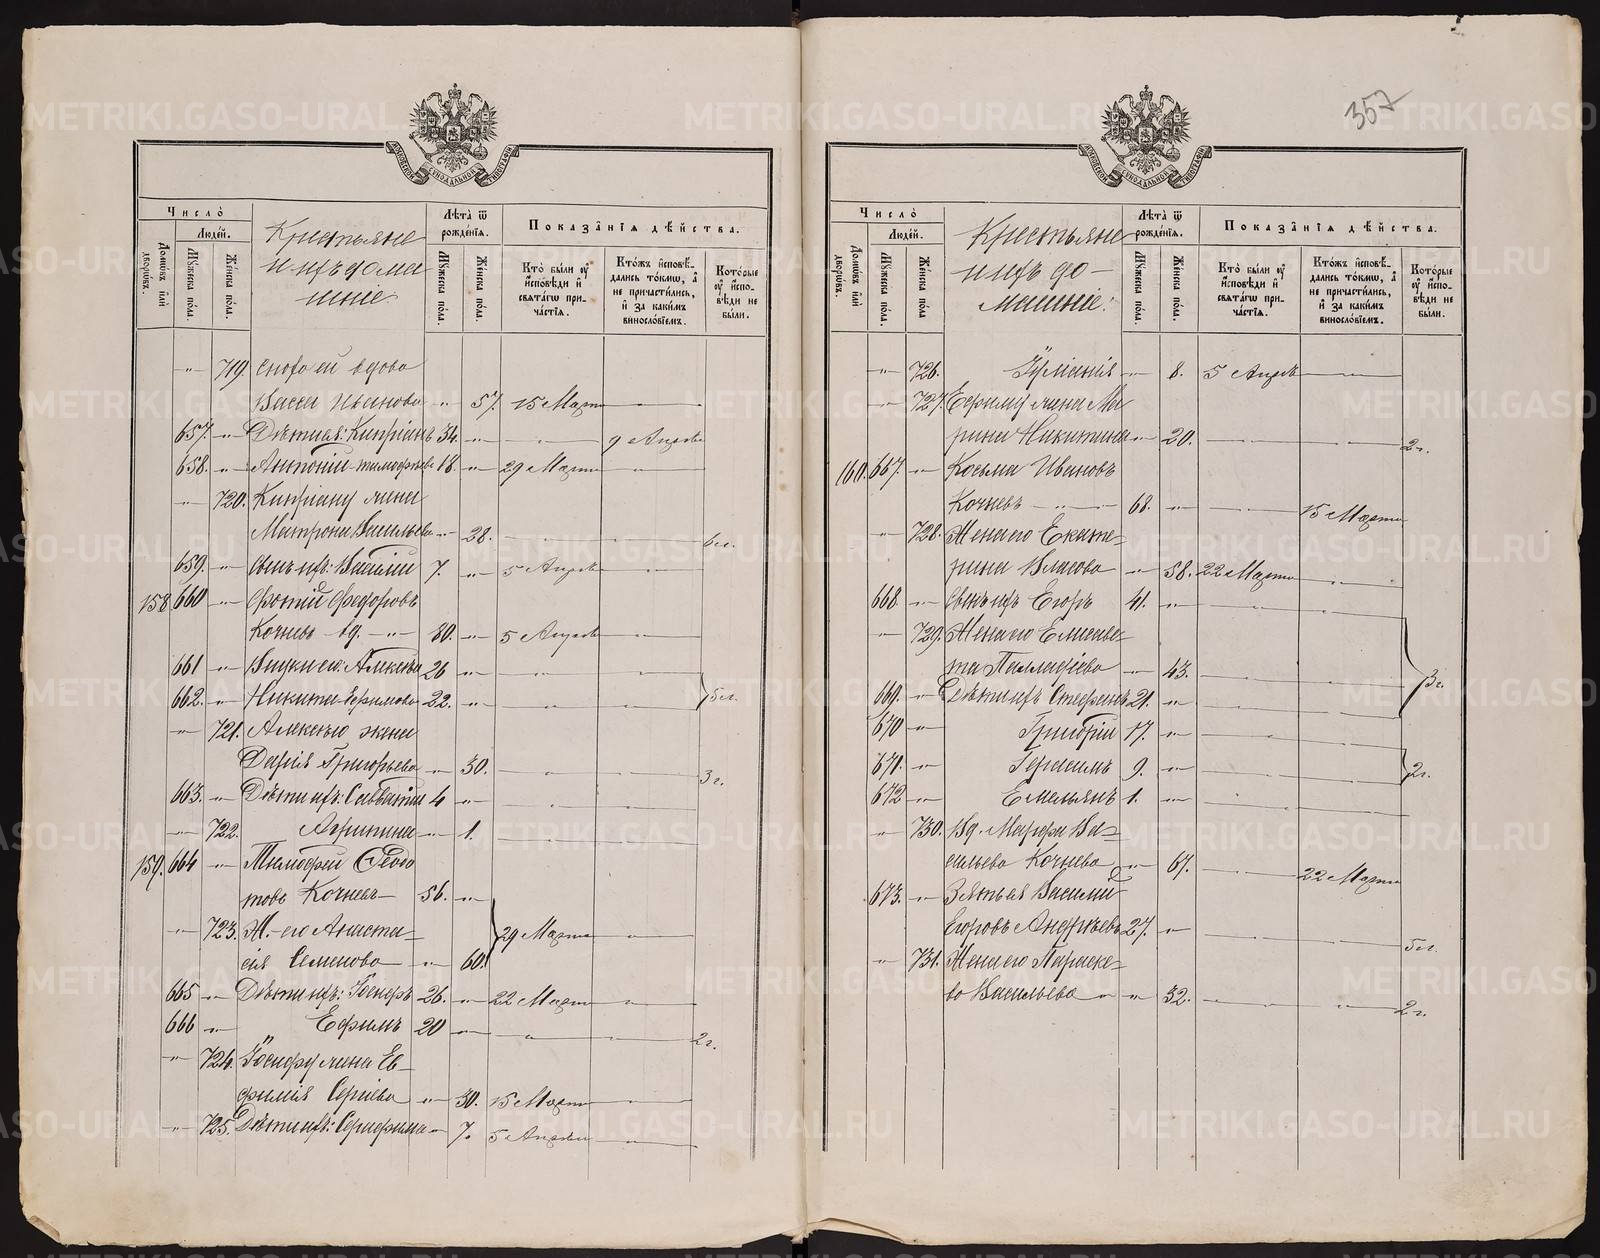 METRIKI.GASO-URAL.RU
МОСКОВСКОЙ СѴНОДАЛЬНОЙ ТИПОГРАФІИ
Число̀
Людей.
Домѡвъ илѝ дворѡвъ.
Мꙋжеска по́ла.
Же́нска по́ла.
Крестьяне
и ихъ дома
шніе
Лѣта ѿ рожде́нія.
Мꙋжеска по́ла.
Же́нска по́ла.
Показа̑нія дѣ́йства.
Кто̀ бы́ли ᲂу҆ и҆сповѣди и҆ свята́гѡ при- ча́стія.
Кто́жъ и҆сповѣ́- дались то́кмѡ, а҆ не причасти́лись, и҆ за каки́мъ винословіемъ.
Кото́рые ᲂу҆ и҆спо- вѣди не бы́ли.
" 719 вдова
Васса Иванова " 57. 15 Марта
657. " Дѣти ея: Кипріанъ 34. " " 9 Апрѣля
658. " Антоній Тимофѣевъ 18. " 29 Марта "
" 720. Кипріану жена
Матрона Васильева " 28. " " 6 л.
659. " Сынъ ихъ: Василій 7. " 5 Апрѣля "
158 660 " Фотій Ѳедоровъ
Кочневъ вд. " 80. " 5 Апрѣля "
661 " Внуки его: Алексѣй 26 " " "
662. " Никита Ефимовъ 22. " " " 5 л.
" 721. Алексѣю жена
Дарія Григорьева " 30. " " 3 г.
663. " Дѣти ихъ: Савватій 4 " " "
" 722. Агрипина " 1. " "
159. 664 " Тимофей Ѳедо
товъ Кочневъ 56. "
" 723. Ж. его Анаста-
сія Семенова " 60. 29 Марта "
665 " Дѣти ихъ: Іосифъ 26. " 22 Марта "
666 " Ефимъ 20 " " " 2 г.
" 724. Іосифу жена Ев-
фимія Сергіева " 30. 15 Марта "
" 725. Дѣти ихъ: Серафима " 7. 5 Апрѣля "
357
МОСКОВСКОЙ СѴНОДАЛЬНОЙ ТИПОГРАФІИ
Число̀
Людей.
Домѡвъ илѝ дворѡвъ.
Мꙋжеска по́ла.
Же́нска по́ла
Крестьяне
и ихъ до-
машніе:
Лѣта ѿ рожде́нія.
Мꙋжеска по́ла.
Же́нска по́ла.
Показа̑нія дѣ́йства.
Кто̀ бы́ли ᲂу҆ и҆сповѣди и҆ свята́гѡ при- ча́стія.
Кто́жъ и҆сповѣ́- дались то́кмѡ, а҆ не причасти́лись, и҆ за каки́мъ винословіемъ.
Кото́рые ᲂу҆ и҆спо- вѣди не бы́ли.
" 726. " 8. 5 Апрѣля
" 727. Ефиму жена Ма
рина Никитина " 20. " " 2 г.
160. 667. " Косьма Ивановъ
Кочневъ " 68. " " 15 Марта
" 728. Жена его Екате-
рина Власова " 58. 22 Марта "
668. " Сынъ ихъ Егоръ 41. " " "
" 729. Жена его Елисаве-
та Палладіева " 43. " " 3 г.
669. " Дѣти ихъ Стефанъ 21. " " "
670 " Григорій 17. " " "
671. " Герасимъ 9. " " " 2 г.
672 " Емельянъ 1. " " "
" 730. Вд. Марфа Ва-
сильева Кочнева " 67. " 22 Марта
673. " Зять ея Василій
Егоровъ Андреевъ 27. " " " 5 л.
" 731. Жена его Параске-
ва Васильева " 32. " " 2 г.